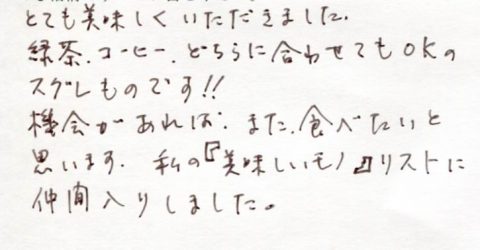 とても美味しくいただきました.
緑茶.コーヒー.どちらに合わせてもOKの
スグレものです!!
機会があれば.また.食べたいと
思います. 私の『美味しいモノ』リストに
仲間入りしました。